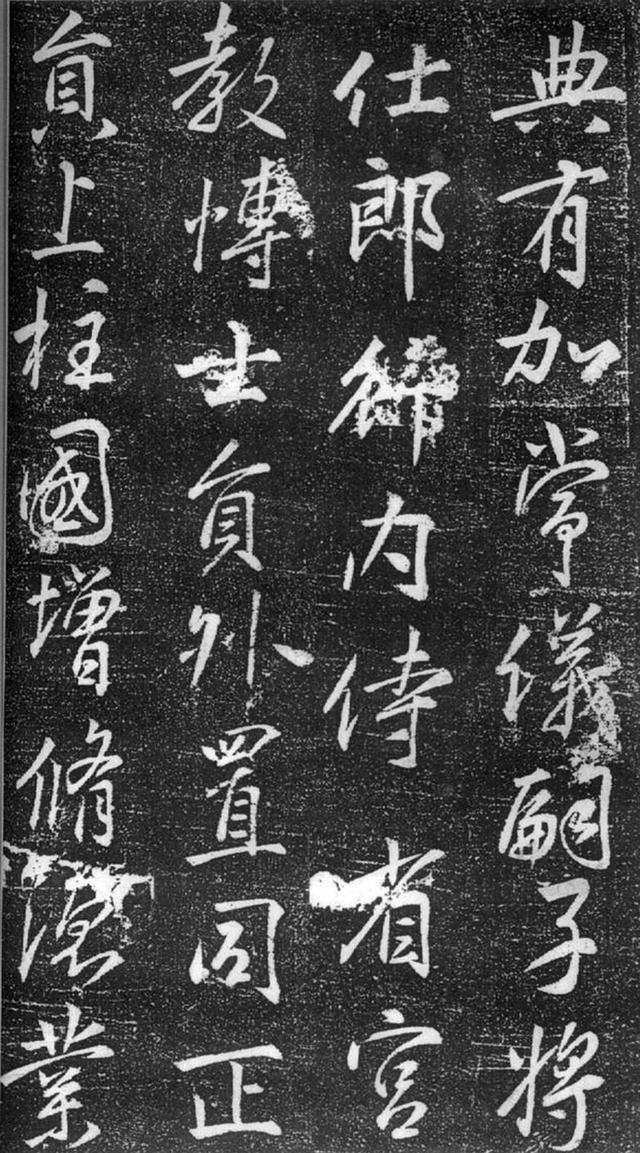 典有加常儀嗣子將
仕郎內侍省宮
教博士員外置同正
員上柱國增脩業